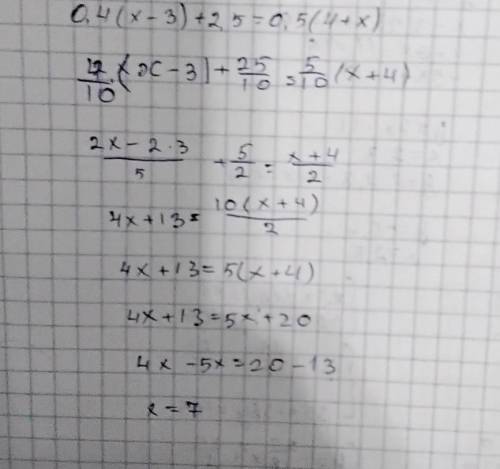 0,4(x-3)+2,5=0,5(4+x)
4/10·(x-3)+25/10=5/10(x+4)
(2x-2·3)/5+5/2=(x+4)/2
4x+13=10(x+4)/2
4x+13=5(x+4)
4x+13=5x+20
4x-5x=20-13
x=7